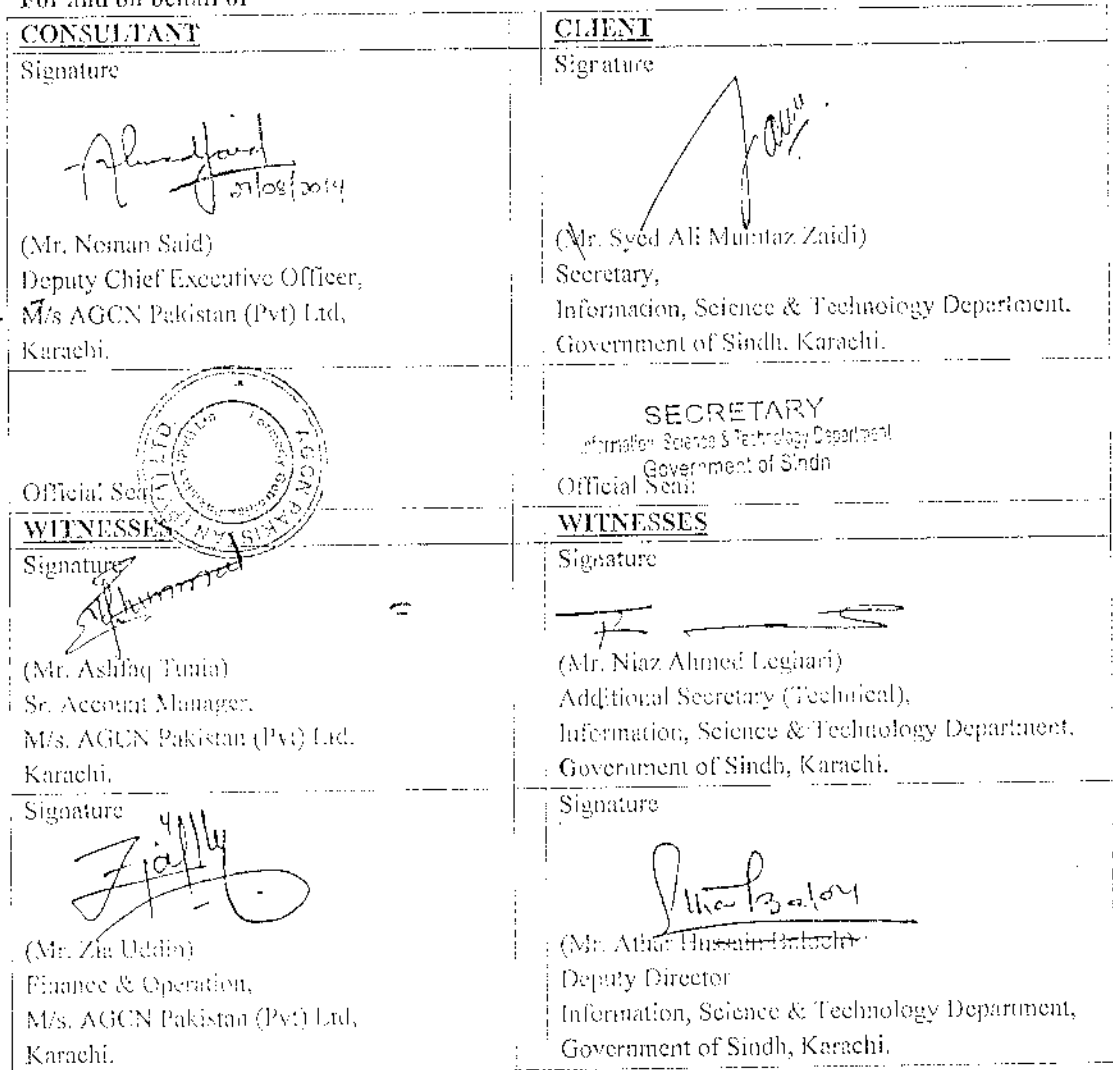 For and on behalf of
CONSULTANT
Signature
27/08/2014
(Mr. Noman Said)
Deputy Chief Executive Officer,
M/s AGCN Pakistan (Pvt) Ltd,
Karachi.
Official Seal:
AGCN PAKISTAN (PVT) LTD.
WITNESSES
Signature
(Mr. Ashfaq Tunia)
Sr. Account Manager,
M/s. AGCN Pakistan (Pvt) Ltd.
Karachi.
Signature
(Mr. Zia Uddin)
Finance & Operation,
M/s. AGCN Pakistan (Pvt) Ltd,
Karachi.
CLIENT
Signature
(Mr. Syed Ali Mumtaz Zaidi)
Secretary,
Information, Science & Technology Department.
Government of Sindh, Karachi.
SECRETARY
Information Science & Technology Department
Government of Sindh
Official Seal:
WITNESSES
Signature
(Mr. Niaz Ahmed Leghari)
Additional Secretary (Technical),
Information, Science & Technology Department.
Government of Sindh, Karachi.
Signature
(Mr. Athar Hussain Baloch)
Deputy Director
Information, Science & Technology Department,
Government of Sindh, Karachi.